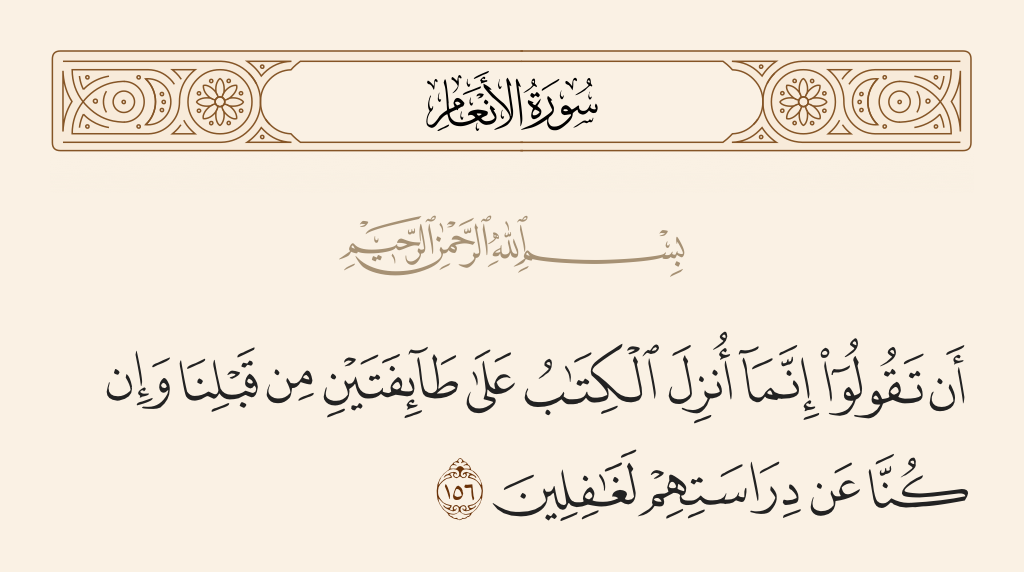 سُورَةُ الأَنْعَامِ
بِسْمِ ٱللَّهِ ٱلرَّحْمَٰنِ ٱلرَّحِيمِ
أَن تَقُولُوٓا۟ إِنَّمَآ أُنزِلَ ٱلْكِتَـٰبُ عَلَىٰ طَآئِفَتَيْنِ مِن قَبْلِنَا وَإِن
كُنَّا عَن دِرَاسَتِهِمْ لَغَـٰفِلِينَ ١٥٦